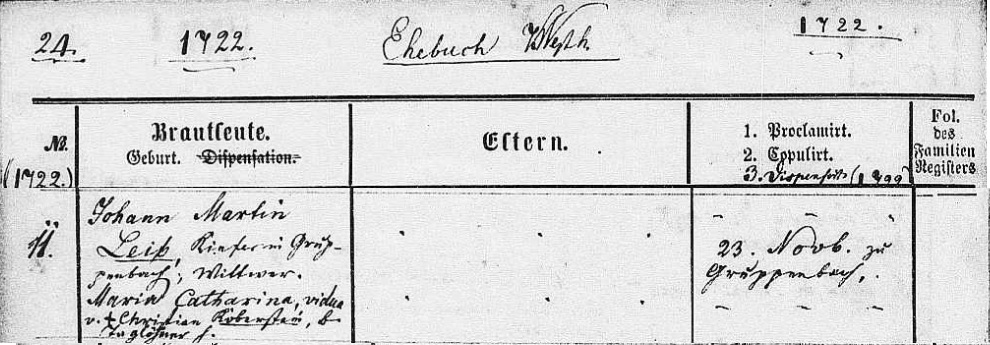 24. 1722. Ehebuch 1722.
№. Brautleute. Eltern. 1. Proclamirt. Fol.
Geburt. Dispensation. 2. Copulirt. des
(1722.) 3. Dispensirt. Familien
Registers
11. Johann Martin
Leiß, Kiefer in Grup-
penbach, Wittwer.
Maria Catharina, vidua
v. + Christian
Taglöhner
23. Novb. zu
Gruppenbach,.